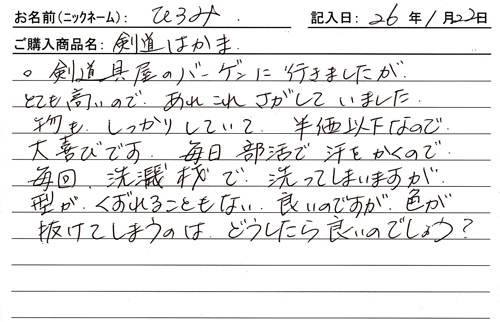 お名前(ニックネーム): ひろみ 記入日: 26年1月22日
ご購入商品名: 剣道はかま
。剣道具屋のバーゲンに行きましたが
とても高いので あれこれ さがして いました
物も しっかりしていて、半価以下なので
大喜びです 毎日 部活で 汗をかくので
毎回、洗濯機で 洗ってしまいますが
型が くずれることもない 良いのですが 色が
抜けてしまうのは、どうしたら良いのでしょう?